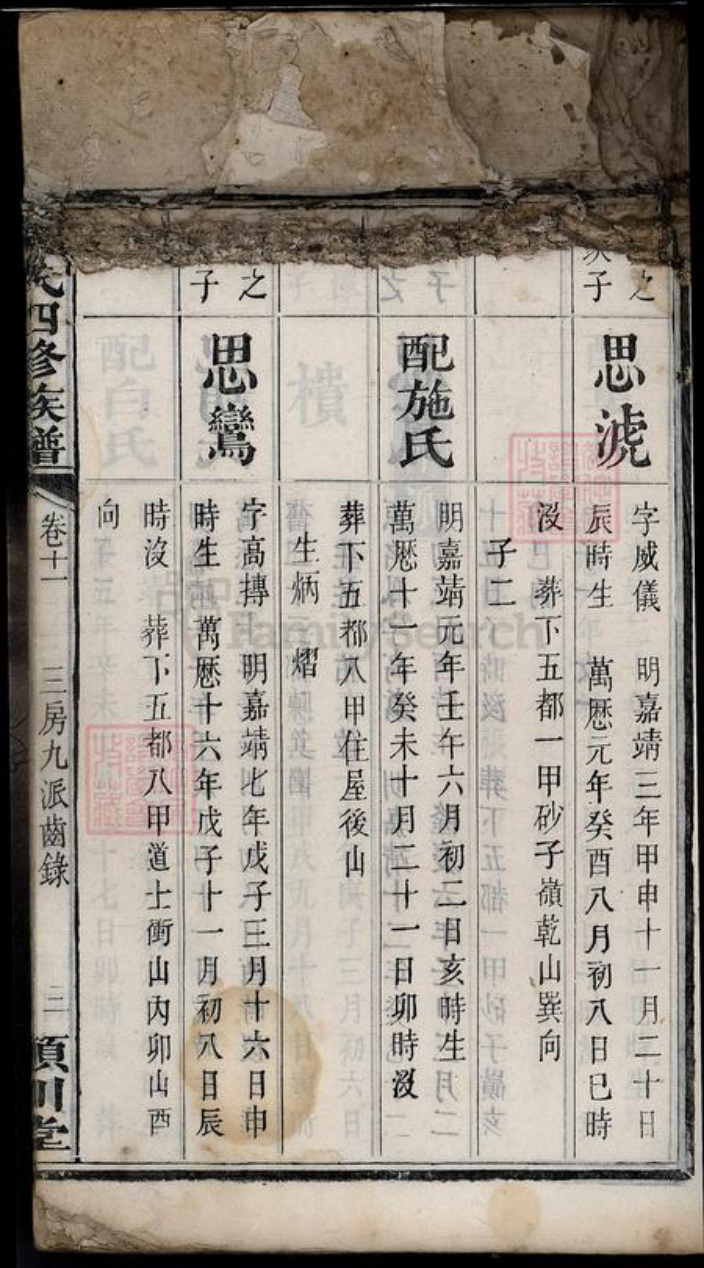 之
子
思淲
字威儀 明嘉靖三年甲申十一月二十日
辰時生 萬厯元年癸酉八月初八日巳時
沒 葬下五都一甲砂子嶺乾山巽向
子二
配施氏
明嘉靖元年壬午六月初二日亥時生
萬厯十一年癸未十月二十一日卯時沒
葬下五都八甲住屋後山
生炳 熠
之
子
思鸞
字高摶 明嘉靖七年戊子三月十六日申
時生 萬厯十六年戊子十一月初八日辰
時沒 葬下五都八甲道士衝山內卯山酉
向
氏四修族譜
卷十一
三房九派齒錄
二
川堂
FamilySearch